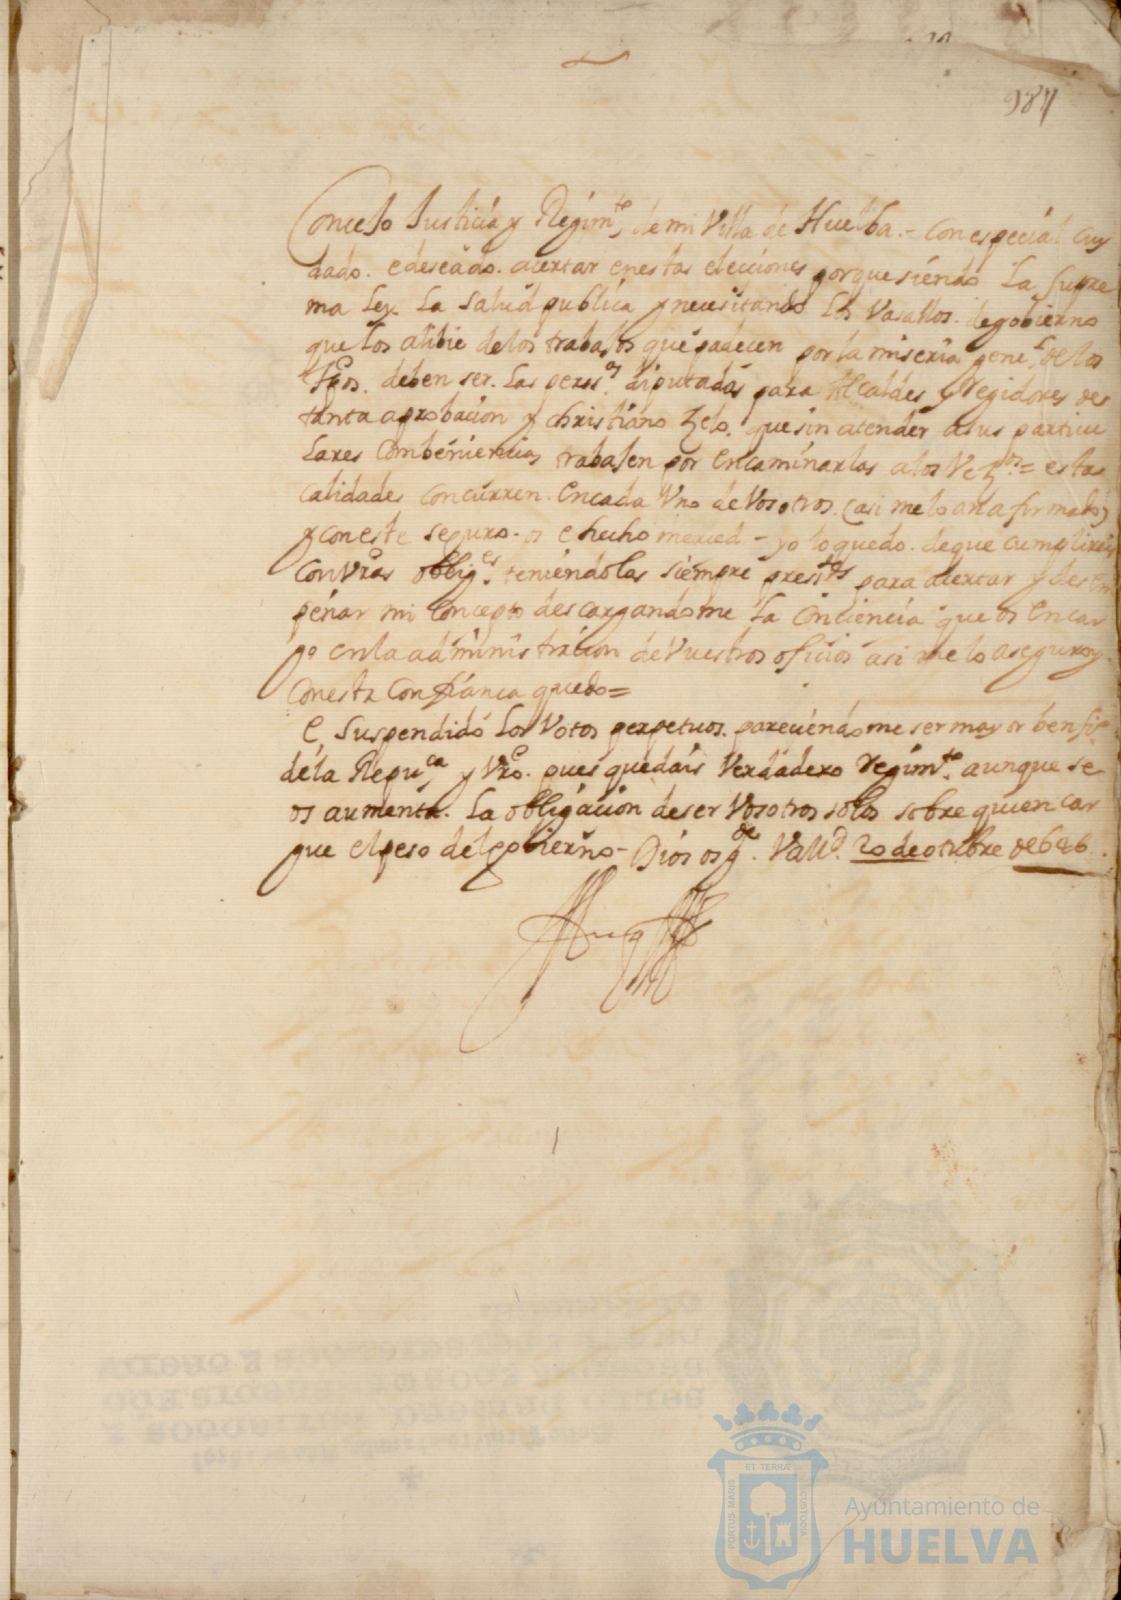 987
Consejo Justicia y Regim.to de mi Villa de Huelba.- Con especial cuy
dado. e deseado. acertar en estas elecciones porque siendo La supre
ma Ley. La salud publica y necesitando Los Vasallos. de gobierno
que los alibie de los trabajos que padecen por la miseria gene.l de los
tpos. deben ser. Las perss.as diputadas para Alcaldes y Regidores de
tanta aprobacion y christiano Zelo. que sin atender a sus particu
Lares Combeniencias trabajen por encaminarlas a los Vez.os = estas
calidades concurren. en cada Vno de Vosotros. (asi me lo an afirmado)
y con este seguro. os e hecho merced - yo lo quedo. de que cumplireis
con Vras oblig.es teniendolas siempre pres.tes para acertar y desem
peñar mi concepto descargandome La Conciencia que os encar
go en la administracion de Vuestros oficios asi me lo aseguro y.
Con esta Confianca quedo=
E, suspendido Los Votos perpetuos. pareciendome ser mayor benfi.o
de la Repu.ca y Vro. pues quedais Verdadero regim.to aunque se
os aumenta. La obligacion de ser Vosotros solos sobre quien car
gue el peso del gobierno - Dios os g.de Vall.d 20 de otubre de 686.
PORTUS MARIS
ET TERRÆ
CUSTODIA
Ayuntamiento de
HUELVA